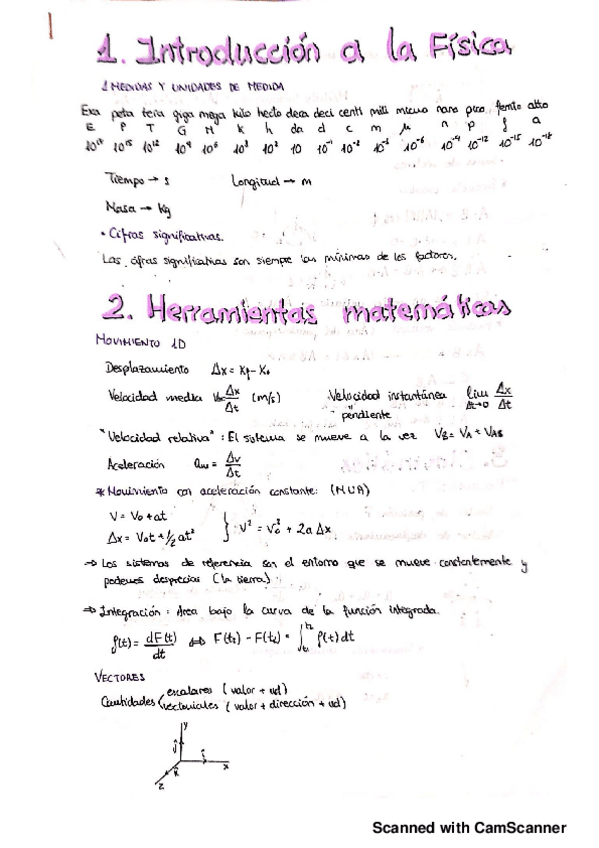 1. Introducción a la Física
1 MEDIDAS Y UNIDADES DE MEDIDA
Exa peta tera giga mega kilo hecto deca deci centi mili micro nano pico femto atto
E P T G M k h da d c m μ n p f a
10¹⁸ 10¹⁵ 10¹² 10⁹ 10⁶ 10³ 10² 10 10⁻¹ 10⁻² 10⁻³ 10⁻⁶ 10⁻⁹ 10⁻¹² 10⁻¹⁵ 10⁻¹⁸
Tiempo → s Longitud → m
Masa → Kg
• Cifras significativas.
Las cifras significativas son siempre las mínimas de los factores.
2. Herramientas matemáticas
MOVIMIENTO 1D
Desplazamiento Δx = Xf - X₀
Velocidad media Δx/Δt (m/s) Velocidad instantánea lim Δt→0 Δx/Δt
pendiente
"Velocidad relativa": El sistema se mueve a la vez VB = VA + VAB
Aceleración am = Δv/Δt
* Movimiento con aceleración constante: (MUA)
V = V₀ + at
Δx = V₀t + 1/2 at² } V² = V₀² + 2a Δx
→ Los sistemas de referencia son el entorno que se mueve constantemente y
podemos despreciar (la tierra).
→ Integración: Area bajo la curva de la función integrada.
f(t) = dF(t)/dt ⇔ F(t₂) - F(t₁) = ∫ f(t) dt
VECTORES
Cantidades escalares (valor + ud)
vectoriales (valor + dirección + ud)
y
j
i
k
x
z
Scanned with CamScanner